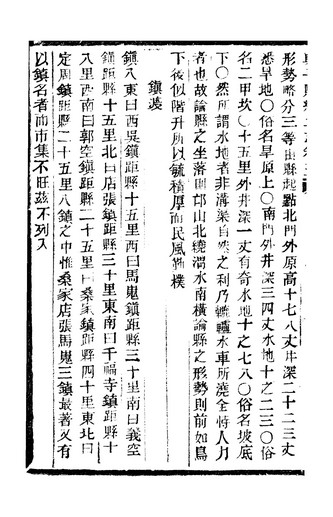 形勢畧分三等由縣起點北門外原高十七八丈井深二十二三丈
悉旱地〇俗名旱原上〇南門外井深三四丈水地十之二三〇俗
名二甲坎〇十五里外井深一丈有奇水地十之七八〇俗名坡底
下〇然所謂水地者非溝渠自然之利乃轆轤水車所澆全恃人力
者也故論縣之坐落則邙山北繞渭水南橫論縣之形勢則前如鳥
下後似階升所以毓積厚而民風勤樸
鎮
鎮八東曰西吳鎮距縣十五里西曰馬嵬鎮距縣三十里南曰義空
鎮距縣十五里北曰店張鎮距縣三十里東南曰千福寺鎮距縣十
八里西南曰郭空鎮距縣二十五里曰桑家鎮距縣四十里東北曰
定周鎮距縣二十五里八鎮之中惟桑家店張馬嵬三鎮最著又有
以鎮名者而市集不旺兹不列入